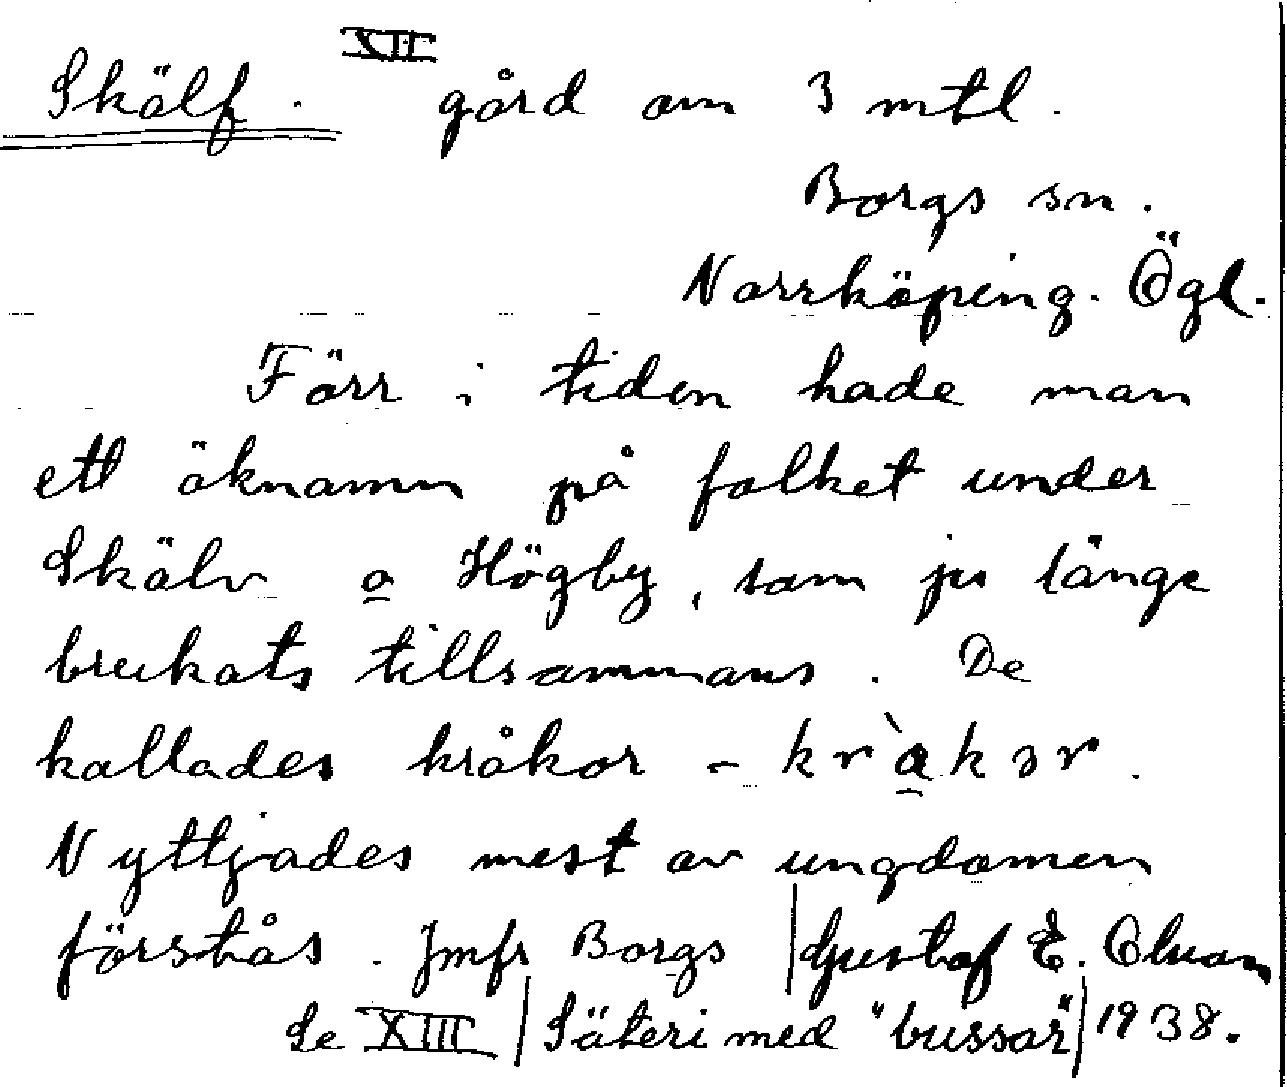 XII
Skälf. gård om 3 mtl.
Borgs sn.
Norrköping. Ögl.
Förr i tiden hade man
ett öknamn på folket under
Skälv o Högby, som ju länge
brukats tillsammans. De
kallades kråkor - kràkər.
Nyttjades mest av ungdomen
förstås. Jmfr Borgs | Gustaf E.
Se XIII | Säteri med "bussar" | 1938.